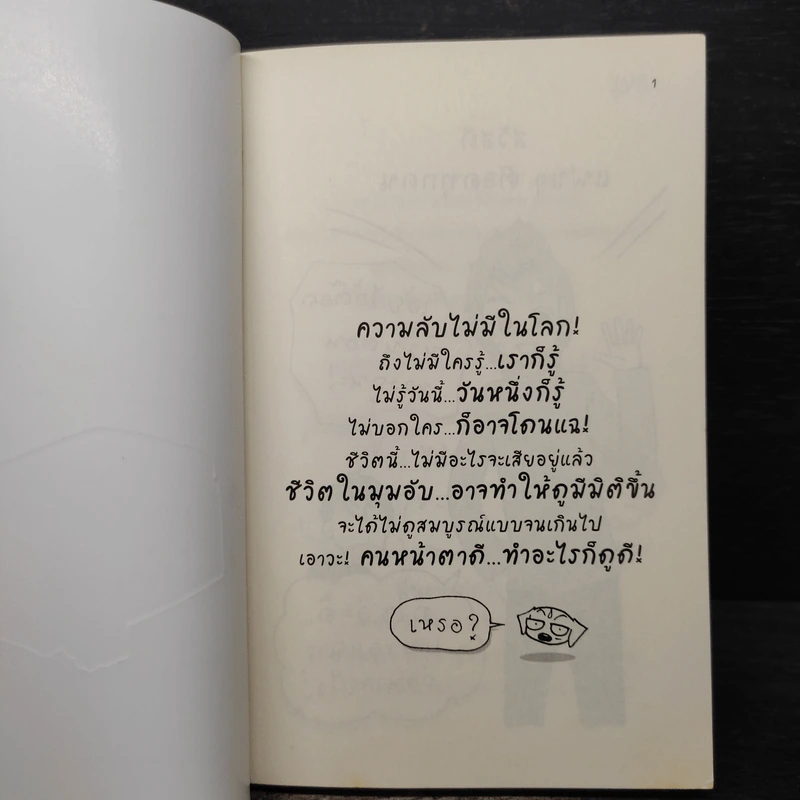 1
ความลับไม่มีในโลก!
ถึงไม่มีใครรู้...เราก็รู้
ไม่รู้วันนี้...วันหนึ่งก็รู้
ไม่บอกใคร...ก็อาจโดนแฉ!
ชีวิตนี้...ไม่มีอะไรจะเสียอยู่แล้ว
ชีวิตในมุมอับ...อาจทำให้ดูมีมิติขึ้น
จะได้ไม่ดูสมบูรณ์แบบจนเกินไป
เอาวะ! คนหน้าตาดี...ทำอะไรก็ดูดี!
เหรอ?